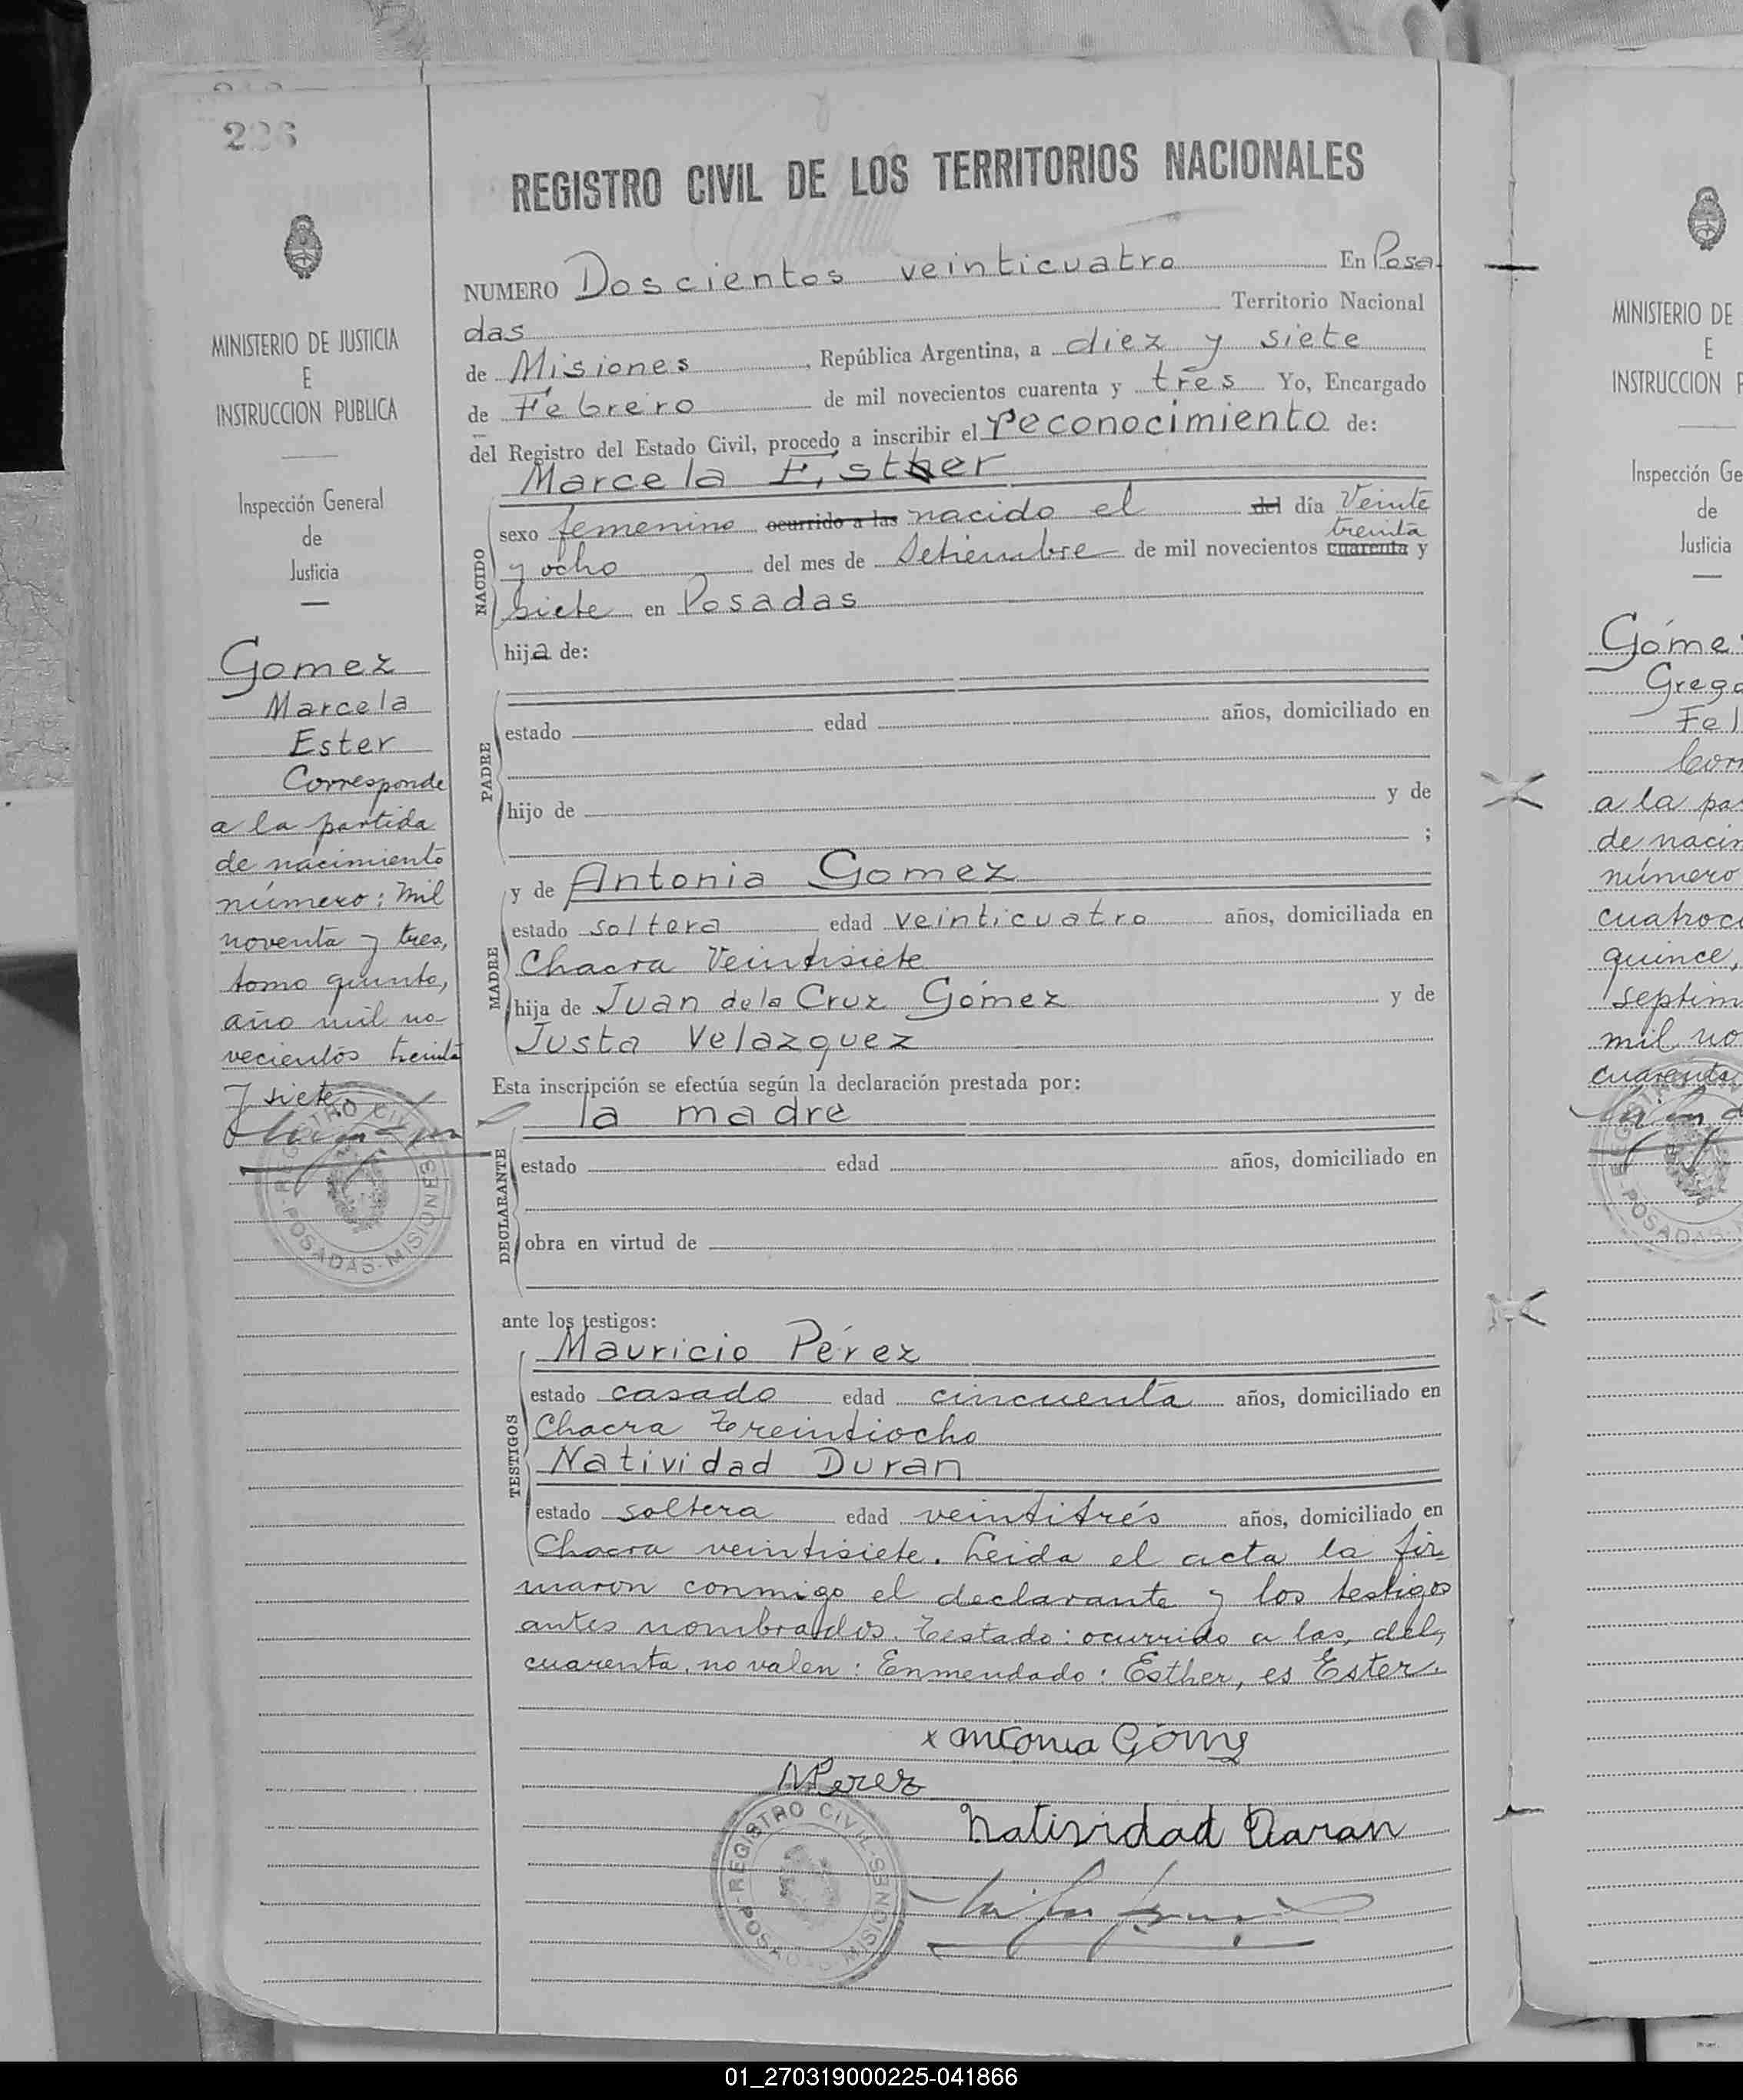 226
REGISTRO CIVIL DE LOS TERRITORIOS NACIONALES
MINISTERIO DE JUSTICIA
E
INSTRUCCION PUBLICA
Inspección General
de
Justicia
Gomez
Marcela
Ester
Corresponde
a la partida
de nacimiento
número: Mil
noventa y tres,
tomo quinto,
año mil no-
vecientos treinta
y siete.
REGISTRO CIVIL
POSADAS-MISIONES
NUMERO Doscientos veinticuatro En Posa-
das Territorio Nacional
de Misiones, República Argentina, a diez y siete
de Febrero de mil novecientos cuarenta y tres Yo, Encargado
del Registro del Estado Civil, procedo a inscribir el reconocimiento de:
Marcela Esther
NACIDO
sexo femenino ocurrido a las nacido el del día Veinte
treinta
y ocho del mes de Setiembre de mil novecientos cuarenta y
siete en Posadas
hija de:
PADRE
estado edad años, domiciliado en
hijo de y de
;
MADRE
y de Antonia Gomez
estado soltera edad veinticuatro años, domiciliada en
Chacra Veintisiete
hija de Juan de la Cruz Gómez y de
Justa Velazquez
Esta inscripción se efectúa según la declaración prestada por:
la madre
DECLARANTE
estado edad años, domiciliado en
obra en virtud de
ante los testigos:
TESTIGOS
Mauricio Pérez
estado casado edad cincuenta años, domiciliado en
Chacra treintiocho
Natividad Duran
estado soltera edad veintitrés años, domiciliado en
Chacra veintisiete. Leida el acta la fir-
maron conmigo el declarante y los testigos
antes nombrados. Testado: ocurrido a las, del,
cuarenta, no valen: Enmendado: Esther, es Ester.
x antonia Gómez
MPerez
Natividad Duran
REGISTRO CIVIL
POSADAS-MISIONES
MINISTERIO DE
E
INSTRUCCION P
Inspección Ge
de
Justicia
Góme
Grego
Fel
Corr
a la par
de nacim
número
cuatroc
quince,
septim
mil no
cuarenta
POSADAS
01_270319000225-041866